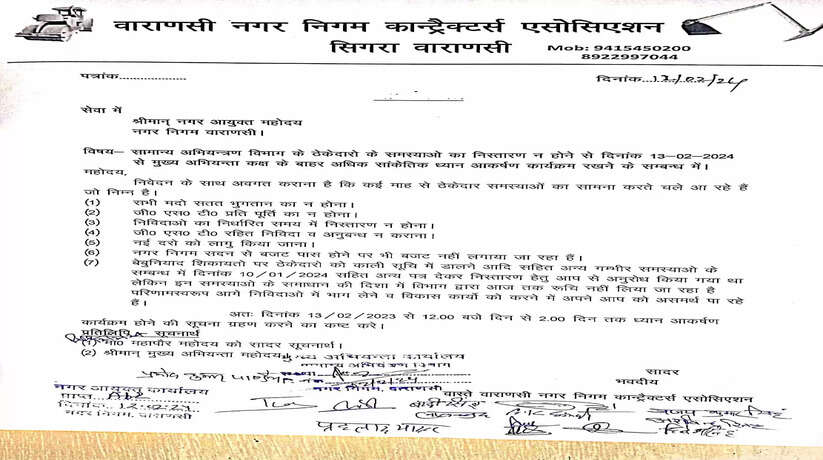 वाराणसी नगर निगम कान्ट्रैक्टर्स एसोसिएशन
सिगरा वाराणसी
Mob: 9415450200
8922997044
पत्रांक....................
दिनांक....................
सेवा में
श्रीमान् नगर आयुक्त महोदय
नगर निगम वाराणसी।
विषय— सामान्य अभियन्त्रण विभाग के ठेकेदारो के समस्याओ का निस्तारण न होने से दिनांक 13-02-2024
से मुख्य अभियन्ता कक्ष के बाहर अधिक सांकेतिक ध्यान आकर्षण कार्यक्रम रखने के सम्बन्ध में।
महोदय,
निवेदन के साथ अवगत कराना है कि कई माह से ठेकेदार समस्याओं का सामना करते चले आ रहे हैं
जो निम्न है।
(1) सभी मदो सतत भुगतान का न होना।
(2) जी० एस० टी० प्रति पूर्ति का न होना।
(3) निविदाओं का निर्धारित समय में निस्तारण न होना।
(4) जी० एस० टी० रहित निविदा व अनुबन्ध न कराना।
(5) नई दरो को लागु किया जाना।
(6) नगर निगम सदन से बजट पास होने पर भी बजट नहीं लगाया जा रहा है।
(7) बेबुनियाद शिकायतो पर ठेकेदारो को काली सूचि में डालने आदि सहित अन्य गम्भीर समस्याओ के
सम्बन्ध में दिनांक 10/01/2024 सहित अन्य पत्र देकर निस्तारण हेतु आप से अनुरोध किया गया था
लेकिन इन समस्याओ के समाधान की दिशा में विभाग द्वारा आज तक रूचि नहीं लिया जा रहा है
परिणामस्वरूप आगे निविदाओ में भाग लेने व विकास कार्यो को करने में अपने आप को असमर्थ पा रहे
हैं।
अतः दिनांक 13/02/2023 से 12.00 बजे दिन से 2.00 दिन तक ध्यान आकर्षण
कार्यक्रम होने की सूचना ग्रहण करने का कष्ट करे।
प्रतिलिपि सूचनार्थ
(1) मा० महापौर महोदय को सादर सूचनार्थ।
(2) श्रीमान् मुख्य अभियन्ता महोदय
मुख्य अभियन्ता कार्यालय
सामान्य अभियंत्रण विभाग
नगर निगम, वाराणसी
सादर
भवदीय
नगर आयुक्त कार्यालय
प्राप्त
दिनांक
नगर निगम, वाराणसी
वास्ते वाराणसी नगर निगम कान्ट्रैक्टर्स एसोसिएशन